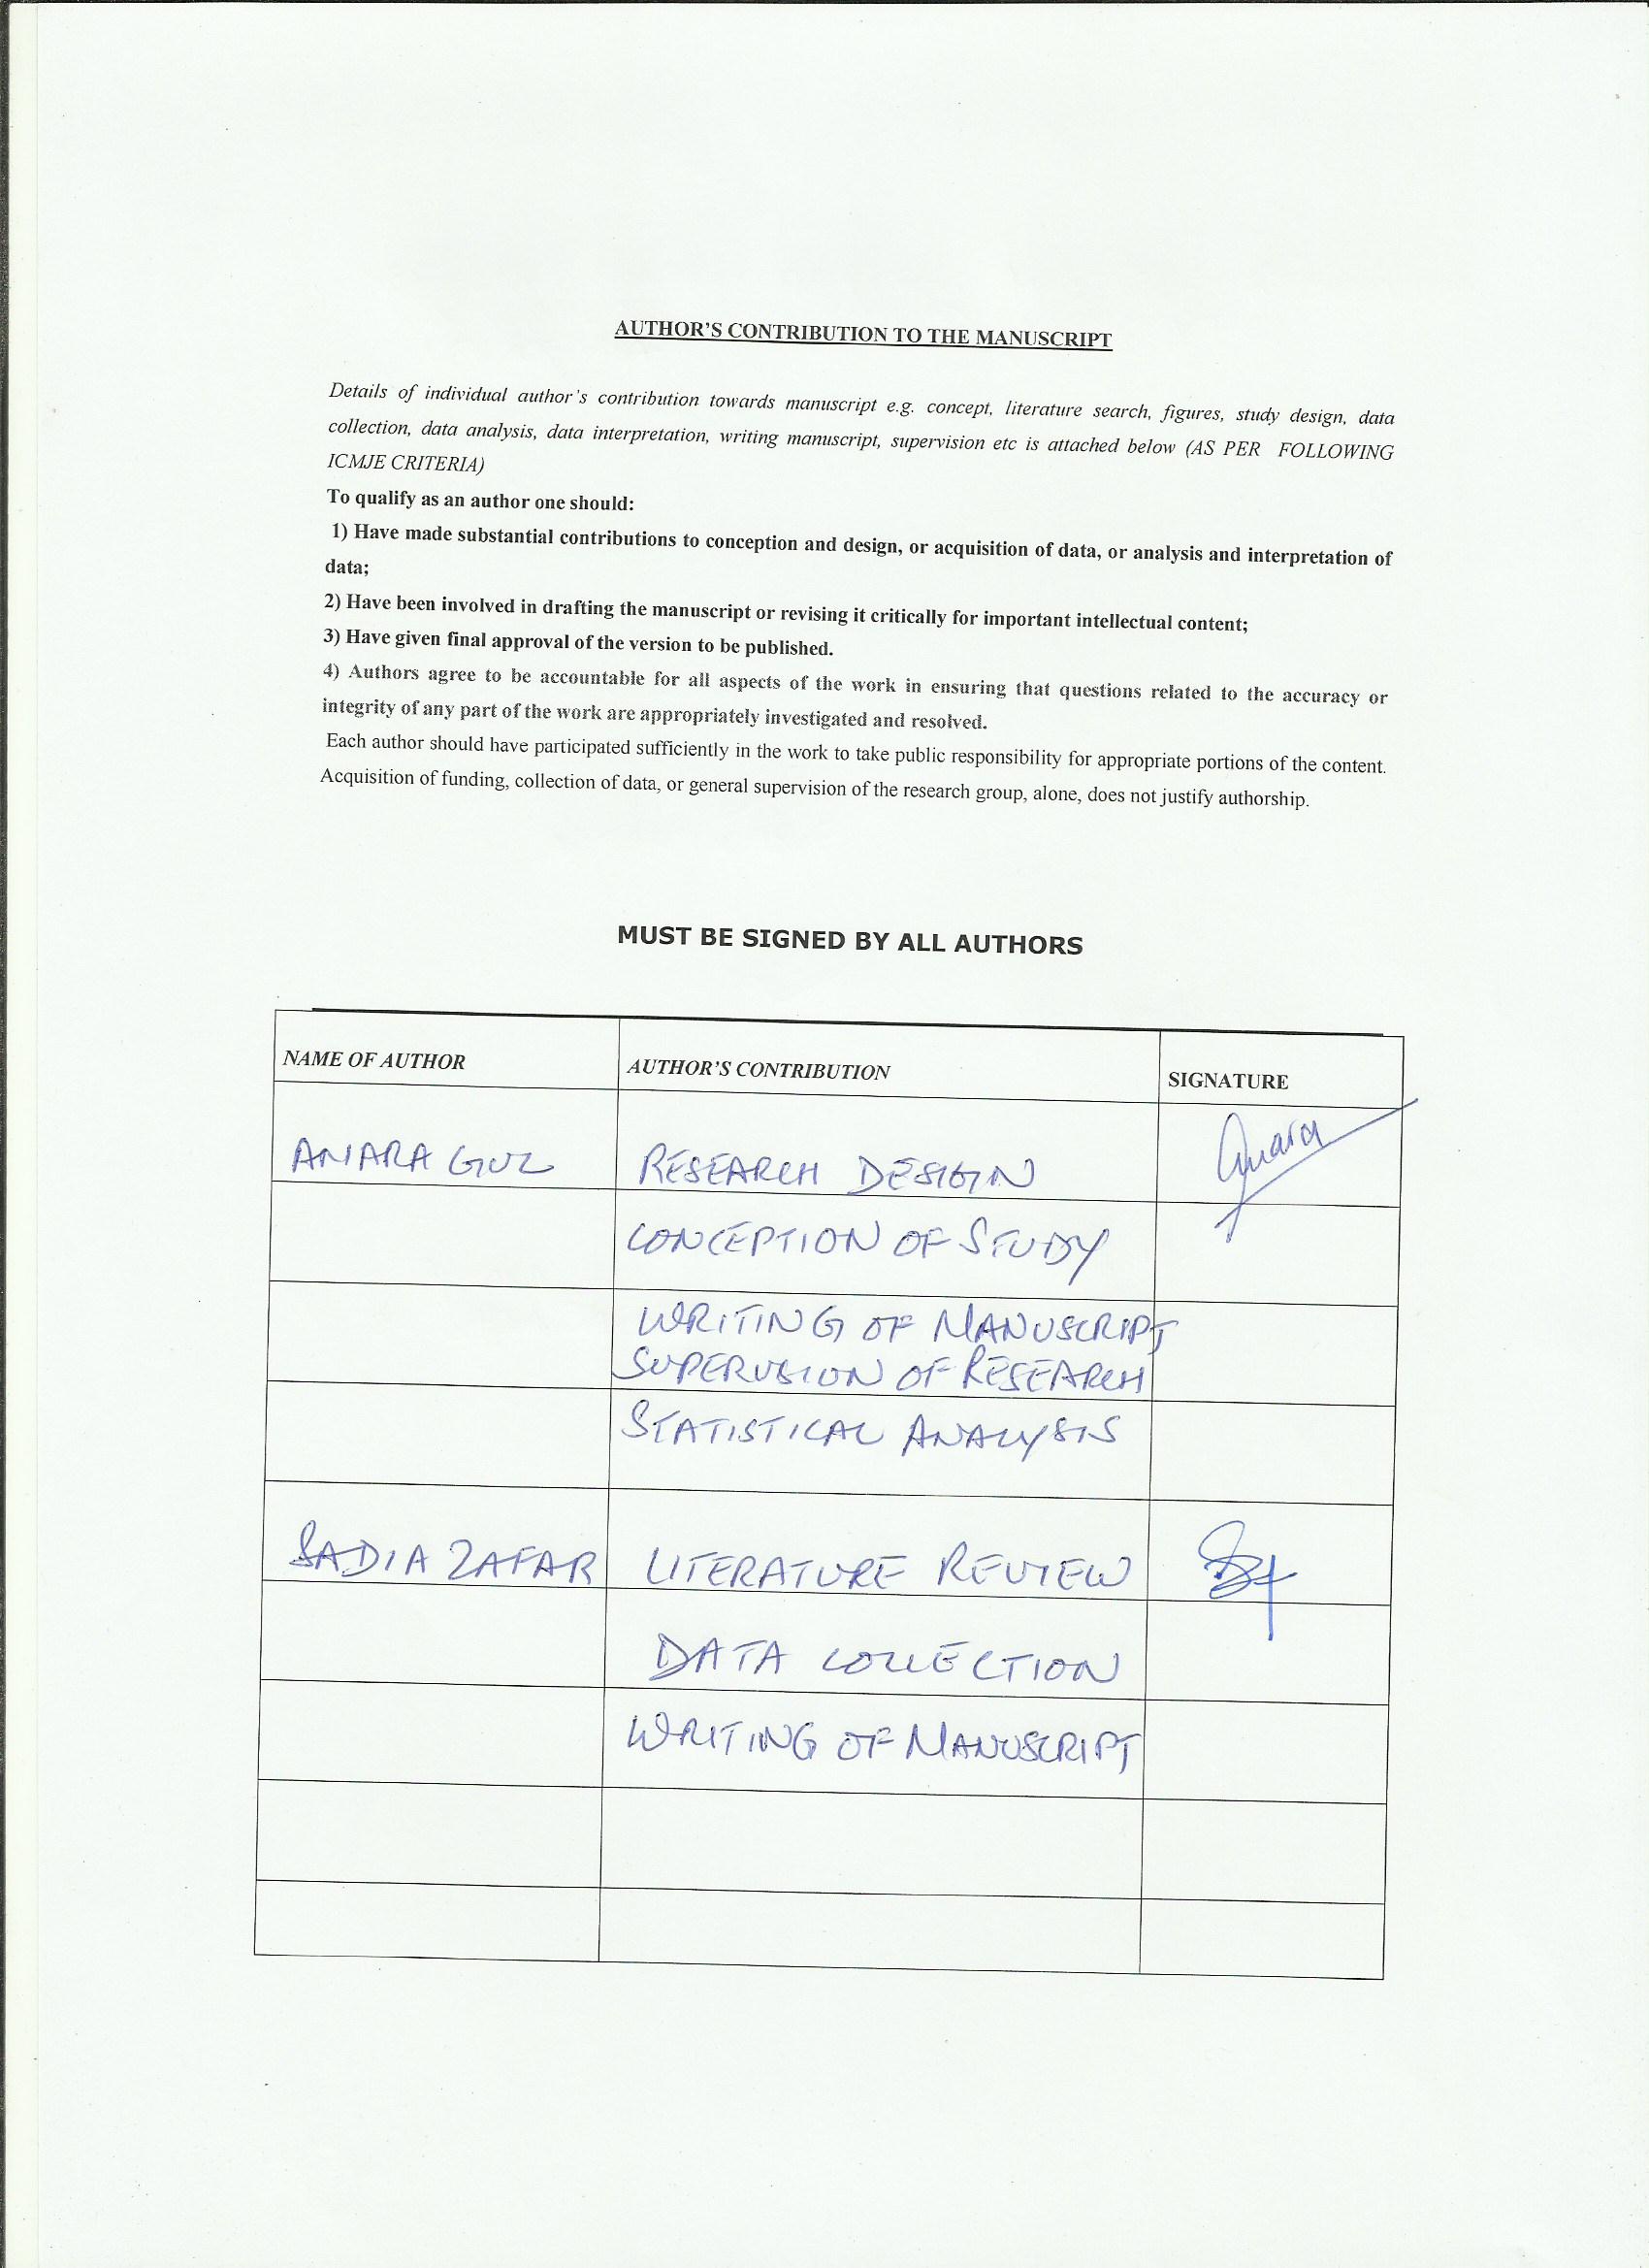 AUTHOR'S CONTRIBUTION TO THE MANUSCRIPT
Details of individual author's contribution towards manuscript e.g. concept, literature search, figures, study design, data
collection, data analysis, data interpretation, writing manuscript, supervision etc is attached below (AS PER FOLLOWING
ICMJE CRITERIA)
To qualify as an author one should:
1) Have made substantial contributions to conception and design, or acquisition of data, or analysis and interpretation of
data;
2) Have been involved in drafting the manuscript or revising it critically for important intellectual content;
3) Have given final approval of the version to be published.
4) Authors agree to be accountable for all aspects of the work in ensuring that questions related to the accuracy or
integrity of any part of the work are appropriately investigated and resolved.
Each author should have participated sufficiently in the work to take public responsibility for appropriate portions of the content.
Acquisition of funding, collection of data, or general supervision of the research group, alone, does not justify authorship.
MUST BE SIGNED BY ALL AUTHORS
NAME OF AUTHOR AUTHOR'S CONTRIBUTION SIGNATURE
AMARA GUL RESEARCH DESIGN Amara
CONCEPTION OF STUDY
WRITING OF MANUSCRIPT
SUPERVISION OF RESEARCH
STATISTICAL ANALYSIS
SADIA ZAFAR LITERATURE REVIEW
DATA COLLECTION
WRITING OF MANUSCRIPT